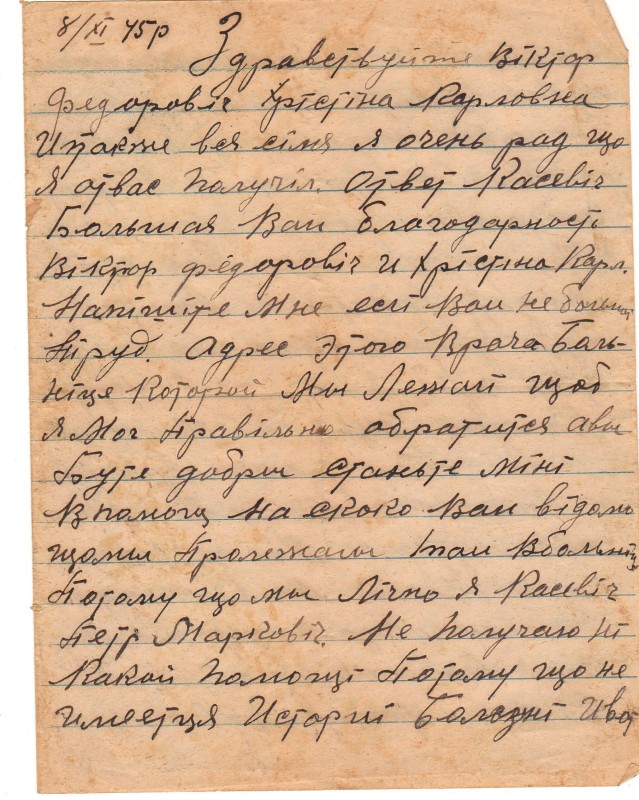 8/XI 45р
Здравствуйте Віктор
Федоровіч Хрістіна Карловна
И также вся сімя я очень рад що
я отвас получіл. Ответ Касевіч
Большая Вам благодарность
Віктор Фёдоровіч и Хрістіна Карл.
Напішіте Мне еслі Вам не большой
труд. Адрес этого Врача Боль-
ніце Которой Мы Лежалі щоб
я Мог правільно обратится авы
Буте добры станьте міні
Впомощ на скоко Вам відомо
щомы Пролежалы там Вбольніце
Потому що мы Лічно я Касевіч
Петр Марковіч. Не получаю ні
Какой помощі Потому що не
имеетця Исторіі Болєзні И вот